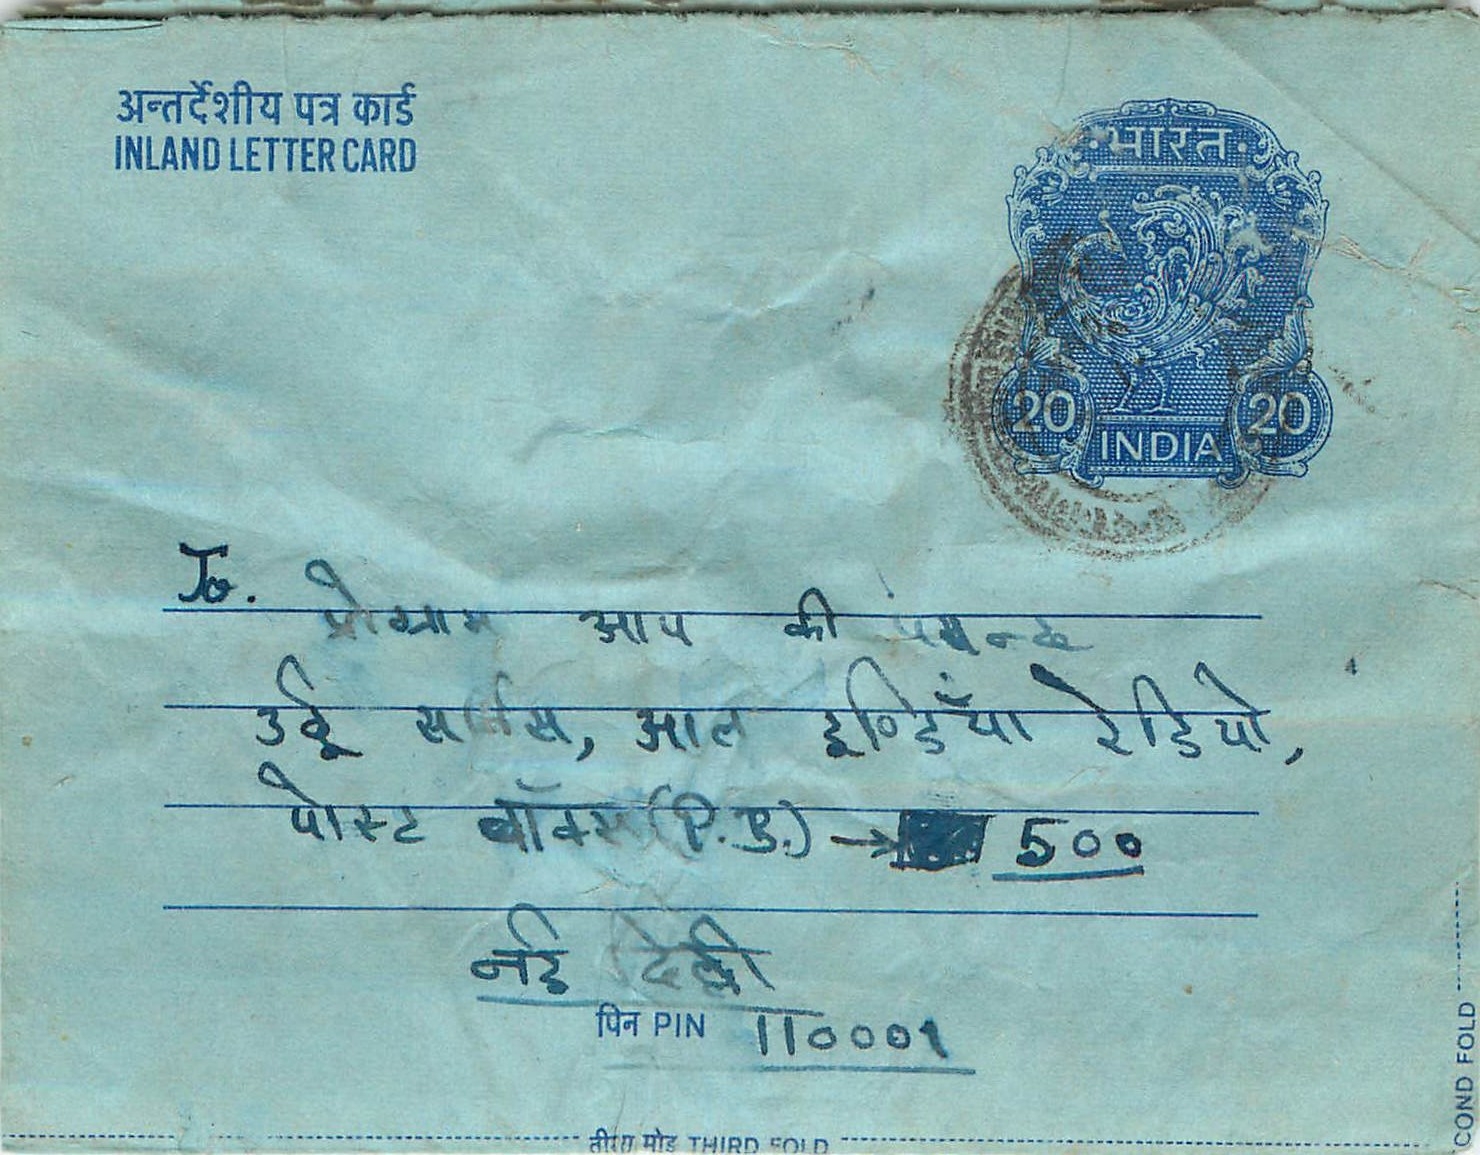 अन्तर्देशीय पत्र कार्ड
INLAND LETTER CARD
भारत
20 20
INDIA
To.
प्रोग्राम आप की पसन्द
उर्दू सर्विस, आल इण्डिया रेडियो,
पोस्ट बॉक्स (P.B.) → 500
नई दिल्ली
पिन PIN 110001
THIRD FOLD
COND FOLD